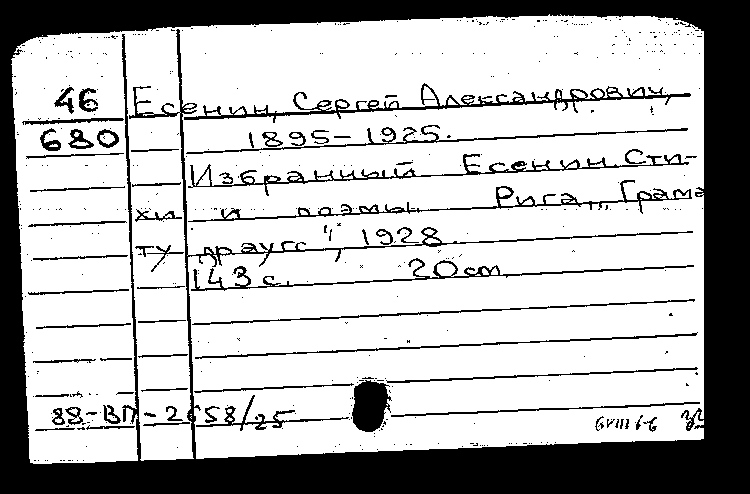 46 Есенин, Сергей Александрович,
680 1895-1925.
Избранный Есенин. Сти-
хи и поэмы. Рига, „Грама
ту драугс", 1928.
143 с. 20 см.
88-ВП-2658/25